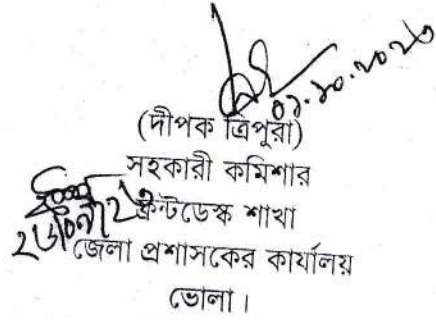 ০১.১০.২০২৩
(দীপক ত্রিপুরা)
সহকারী কমিশার
ফ্রন্টডেস্ক শাখা
জেলা প্রশাসকের কার্যালয়
ভোলা।